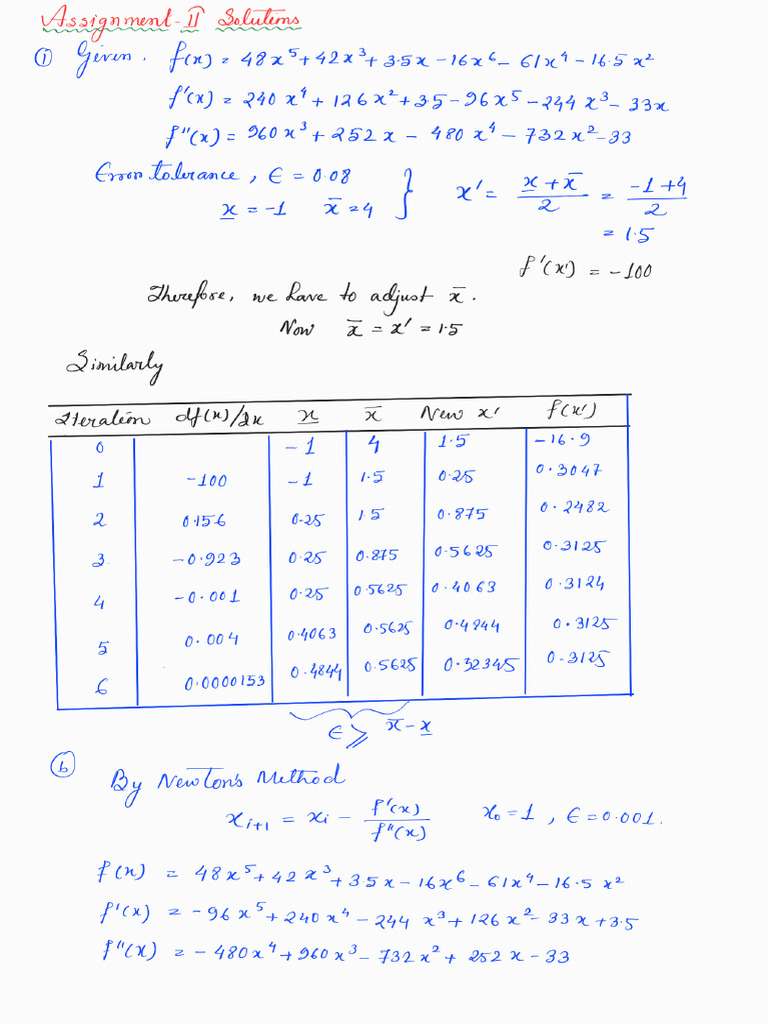 Assignment-II Solutions
① Given, f(x) = 48x⁵ + 42x³ + 3.5x - 16x⁶ - 61x⁴ - 16.5x²
f'(x) = 240x⁴ + 126x² + 3.5 - 96x⁵ - 244x³ - 33x
f''(x) = 960x³ + 252x - 480x⁴ - 732x² - 33
Error tolerance, ϵ = 0.08 } x' = (x̲ + x̄)/2 = (-1+4)/2
x̲ = -1 x̄ = 4
= 1.5
f'(x') = -100
Therefore, we have to adjust x̄.
Now x̄ = x' = 1.5
Similarly
Iteration df(x)/dx x̲ x̄ New x' f(x')
0 -1 4 1.5 -16.9
1 -100 -1 1.5 0.25 0.3047
2 0.156 0.25 1.5 0.875 0.2482
3 -0.923 0.25 0.875 0.5625 0.3125
4 -0.001 0.25 0.5625 0.4063 0.3124
5 0.004 0.4063 0.5625 0.4844 0.3125
6 0.0000153 0.4844 0.5625 0.32345 0.3125
ϵ ⩾ x̄ - x̲
ⓑ By Newton's Method
xᵢ₊₁ = xᵢ - f'(x)/f''(x) x₀ = 1, ϵ = 0.001.
f(x) = 48x⁵ + 42x³ + 3.5x - 16x⁶ - 61x⁴ - 16.5x²
f'(x) = -96x⁵ + 240x⁴ - 244x³ + 126x² - 33x + 3.5
f''(x) = -480x⁴ + 960x³ - 732x² + 252x - 33